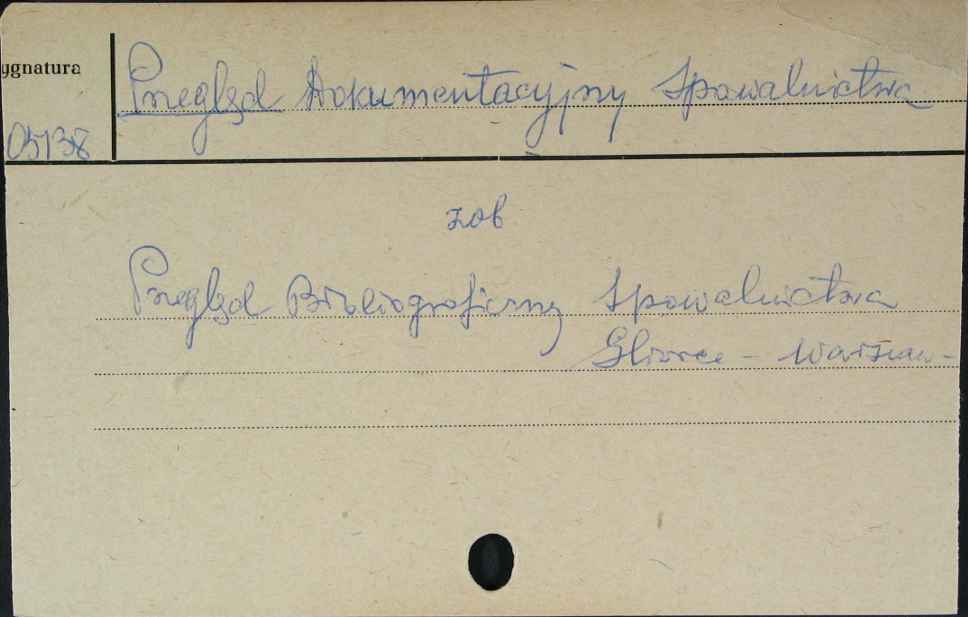 ygnatura
Przegląd Dokumentacyjny Spawalnictwa
05138
zob
Przegląd Bibliograficzny Spawalnictwa
Gliwice - Warszaw-